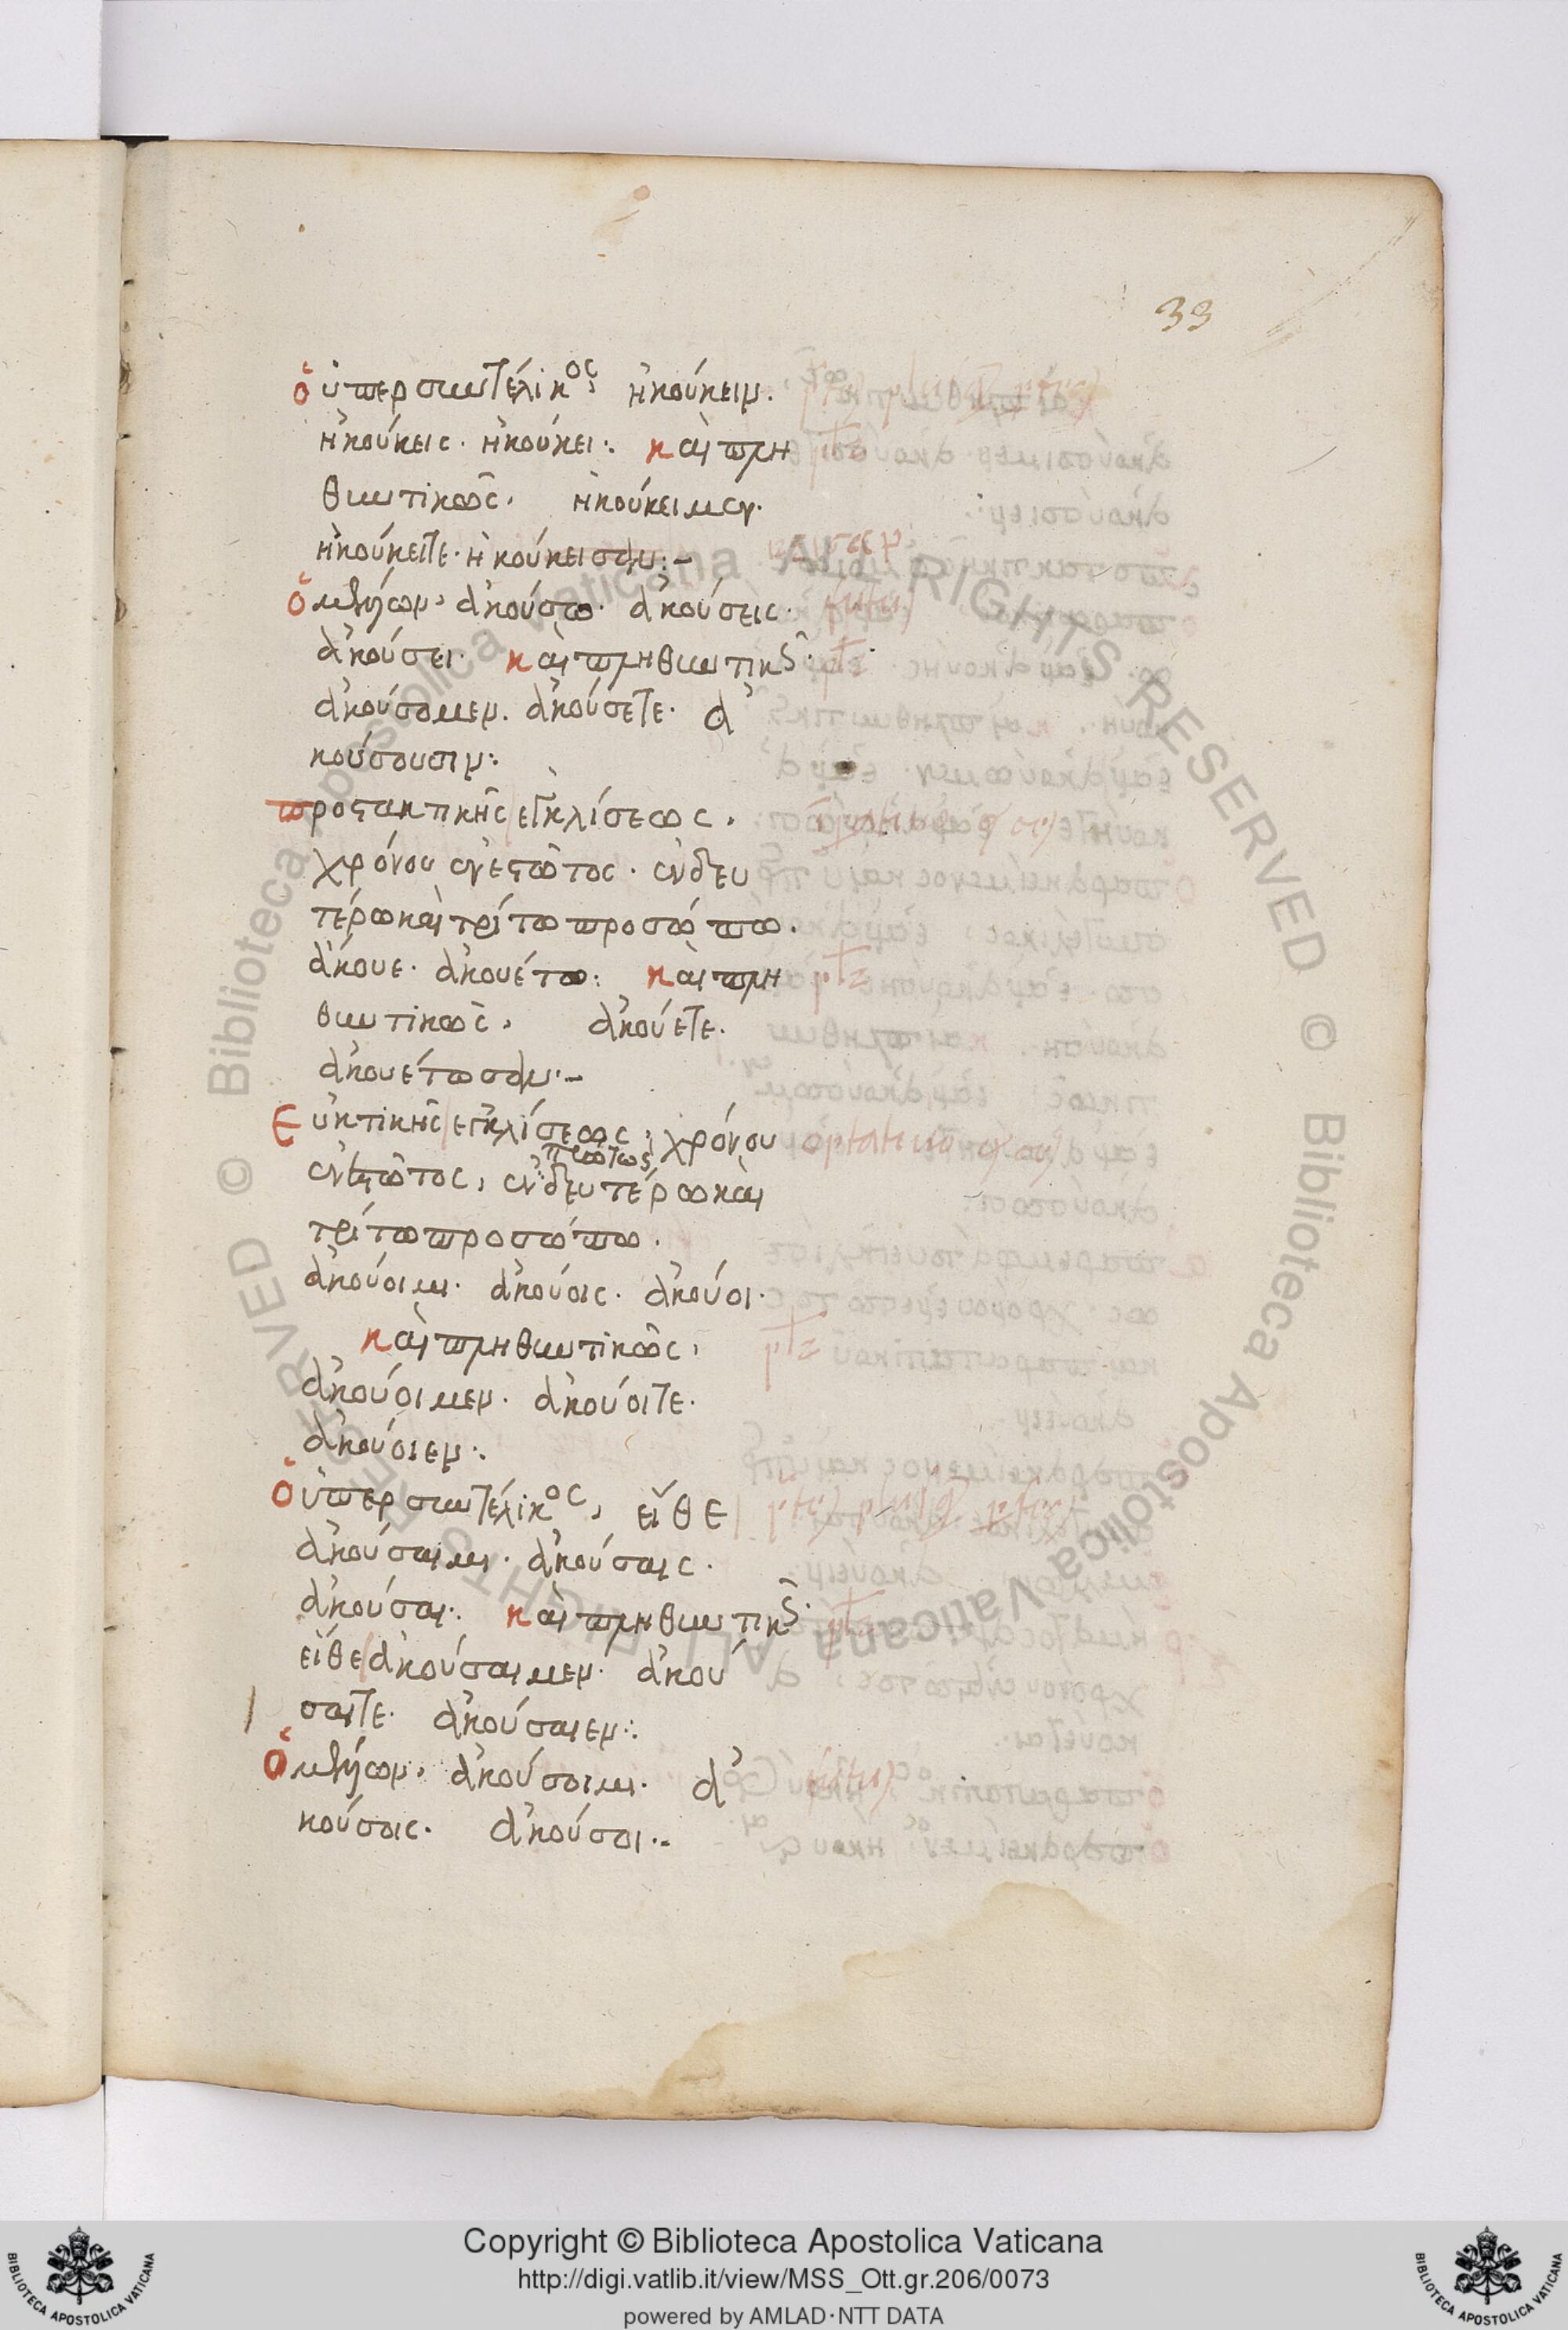 33
ὁ ὑπερσυντέλικος, ἠκούκειν.
ἠκούκεις. ἠκούκει: καὶ πλη
θυντικῶς. ἠκούκειμεν.
ἠκούκειτε. ἠκούκεισαν:-
ὁ μέλλων, ἀκούσω. ἀκούσεις.
ἀκούσει. καὶ πληθυντικῶς.
ἀκούσομεν. ἀκούσετε. ἀ
κούσουσιν:
προστακτικῆς ἐγκλίσεως.
χρόνου ἐνεστῶτος. ἐν δευ
τέρω καὶ τρίτω προσώπω.
ἄκουε. ἀκουέτω: καὶ πλη
θυντικῶς, ἀκούετε.
ἀκουέτωσαν.-
Εὐκτικῆς ἐγκλίσεως, χρόνου optatiuus
πρώτως
ἐνεστῶτος, ἐν δευτέρω καὶ
τρίτω προσώπω.
ἀκούοιμι. ἀκούοις. ἀκούοι.
καὶ πληθυντικῶς,
ἀκούοιμεν. ἀκούοιτε.
ἀκούοιεν:.
ὁ ὑπερσυντέλικος, εἴθε
ἀκούσαιμι. ἀκούσαις.
ἀκούσαι. καὶ πληθυντικῶς.
εἴθε ἀκούσαιμεν. ἀκού
σαιτε. ἀκούσαιεν:.
ὁ μέλλων, ἀκούσοιμι. ἀ
κούσοις. ἀκούσοι.-
© Biblioteca Apostolica Vaticana ALL RIGHTS RESERVED
Copyright © Biblioteca Apostolica Vaticana
http://digi.vatlib.it/view/MSS_Ott.gr.206/0073
powered by AMLAD·NTT DATA
BIBLIOTECA APOSTOLICA VATICANA
BIBLIOTECA APOSTOLICA VATICANA